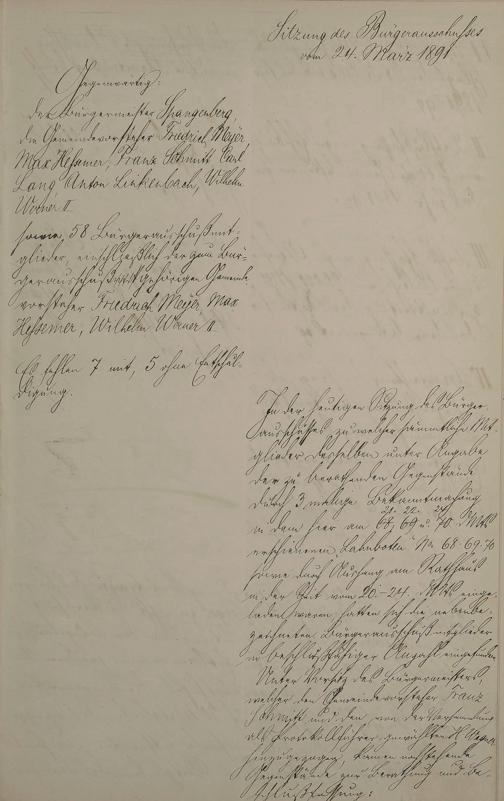 Sitzung des Bürgerausschusses
vom 24. März 1891
Gegenwärtig:
der Bürgermeister Spangenberg,
die Gemeindevorsteher Friedrich Meyer,
Max Hessemer, Franz Schmitt, Carl
Lang, Anton Linkenbach, Wilhelm
Werner II.
sowie 58 Bürgerausschußmit-
glieder, einschließlich der zum Bür-
gerausschuß gehörigen Gemeinde
vorsteher Friedrich Meyer, Max
Hessemer, Wilhelm Werner II.
Es fehlen 7 mit, 5 ohne Entschul-
digung.
In der heutigen Sitzung des Bürger-
ausschusses zu welcher sämmtliche Mit-
glieder desselben unter Angabe
der zu berathenden Gegenstände
durch 3 malige Bekanntmachung
21. 22. 24.
in dem hier am 68, 69 u. 70 d. Mts
erschienenen „Lahnboten" No 68. 69. 70
sowie durch Aushang am Rathhaus
in der Zeit vom 20.-24. d. Mts einge-
laden waren, hatten sich die nebenbe-
zeichneten Bürgerausschußmitglieder
in beschlußfähiger Anzahl eingefunden.
Unter Vorsitz des Bürgermeisters,
welcher den Gemeindevorsteher Franz
Schmitt und den von der Versammlung
als Protokollführer gewählten H.
hinzugezogen, kamen nachstehende
Gegenstände zur Berathung und Be-
schlußfassung: